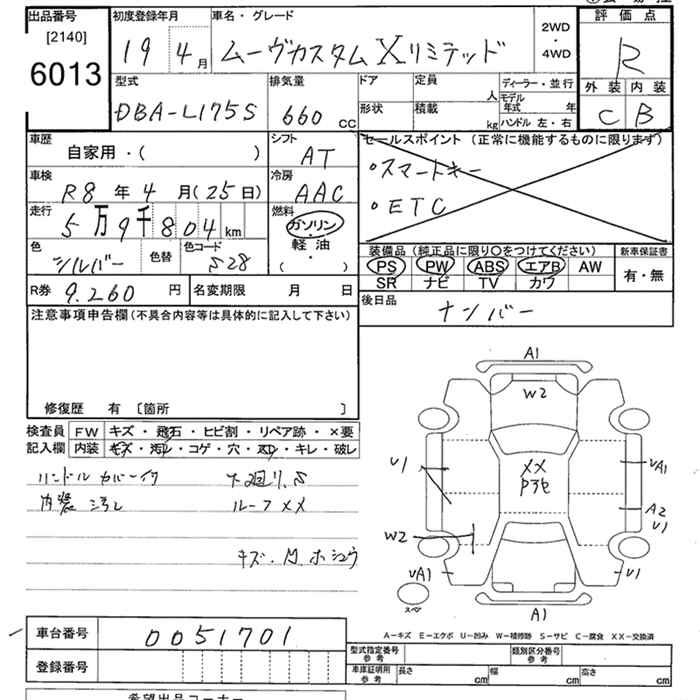 出品番号 初度登録年月 車名・グレード 評価点
[2140]
6013
19 4月 ムーヴカスタムXリミテッド 2WD・4WD R
型式 排気量 ドア 定員 人 ディーラー・並行 外装 内装
DBA-L175S 660cc 形状 積載 kg モデル年式 年 ハンドル 左・右 C B
車歴 シフト セールスポイント (正常に機能するものに限ります)
自家用・( ) AT
・スマートキー
車検 冷房
R8年4月(25日) AAC
・ETC
走行 燃料
5万9千804km ガソリン・軽油・( )
色 色替 色コード 装備品 (純正品に限り〇をつけてください) 新車保証書
シルバー S28 PS PW ABS エアB AW 有・無
SR ナビ TV カワ
R券 9.260円 名変期限 月 日 後日品
ナンバー
注意事項申告欄(不具合内容等は具体的に記入して下さい)
修復歴 有 〔箇所 〕
検査員 FW キズ・飛石・ヒビ割・リペア跡・×要
記入欄 内装 キズ・汚レ・コゲ・穴・スレ・キレ・破レ
ハンドルカバー付 下廻り.S
内装 汚レ ルーフXX
キズ.凹.ホシュウ
A1
W2
U1
XX
P3セ
UA1
A2
U1
W2
UA1
U1
A1
スペア
A-キズ E-エクボ U-凹み W-補修跡 S-サビ C-腐食 XX-交換済
車台番号 0051701
型式指定番号 参考 類別区分番号 参考
登録番号 車庫証明用 参考 長さ cm 幅 cm 高さ cm
希望出品コーナー